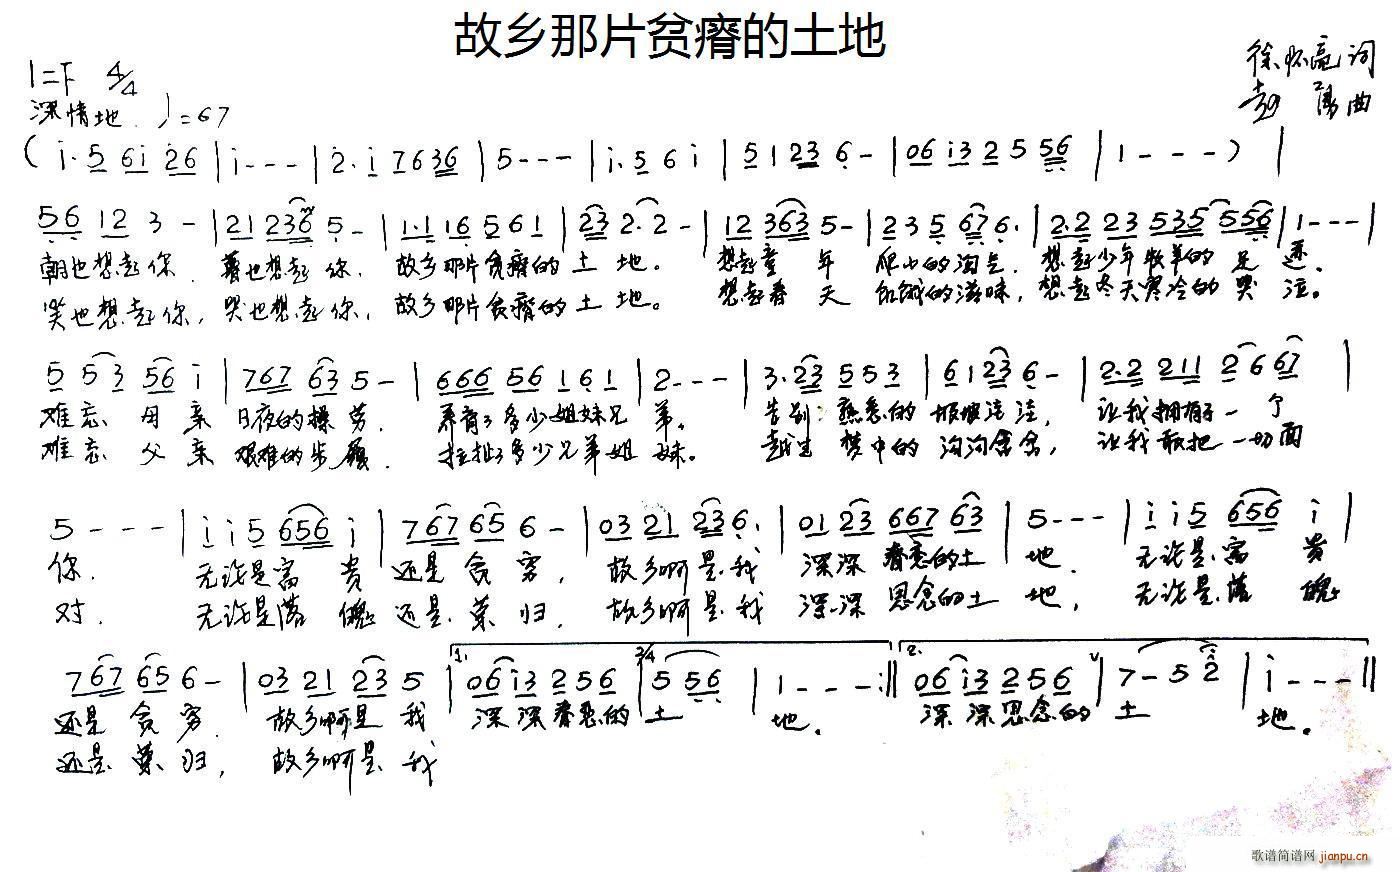 故乡那片贫瘠的土地
1=F 4/4
徐怀亮词
深情地 ♩=67
彭 勇曲
(i·5 6i 26 | i--- | 2·i 7636 | 5--- | i·5 6 i | 5 1 23 6- | 06 i3 2 5 56 | 1---) |
56 12 3- | 21 236 5- | 1·1 16 561 | 23 2·2- | 12 363 5- | 235 67 6· | 2·2 23 535 556 | 1--- |
朝也想起你 暮也想起你, 故乡那片贫瘠的土地。 想起童年 爬山的淘气, 想起少年牧羊的足迹。
笑也想起你, 哭也想起你, 故乡那片贫瘠的土地。 想起春天 饥饿的滋味, 想起冬天寒冷的哭泣。
5 53 56 i | 767 63 5- | 666 56 161 | 2--- | 3·23 553 | 61 23 6- | 2·2 211 26 67 |
难忘母亲 日夜的操劳, 养育了多少姐妹兄弟。 告别 熟悉的坡坡洼洼, 让我拥有了一个
难忘父亲 艰难的步履, 拉扯了多少兄弟姐妹。 越过 梦中的沟沟峁峁, 让我敢把一切面
5--- | i i5 656 i | 767 65 6- | 03 21 23 6· | 01 23 667 63 | 5--- | i i5 656 i |
你. 无论是富贵 还是贫穷, 故乡啊是我 深深眷恋的土地. 无论是富贵
对. 无论是落魄 还是荣归, 故乡啊是我 深深思念的土地, 无论是落魄
767 65 6- | 03 21 23 5 | 1. 06 i3 256 | 3/4 5 56 | 1---:‖ 2. 06 i3 256 | 7-52 | i---‖
还是贫穷. 故乡啊是我 深深眷恋的土地。 深深思念的土地。
还是荣归, 故乡啊是我
歌谱简谱网 jianpu.cn